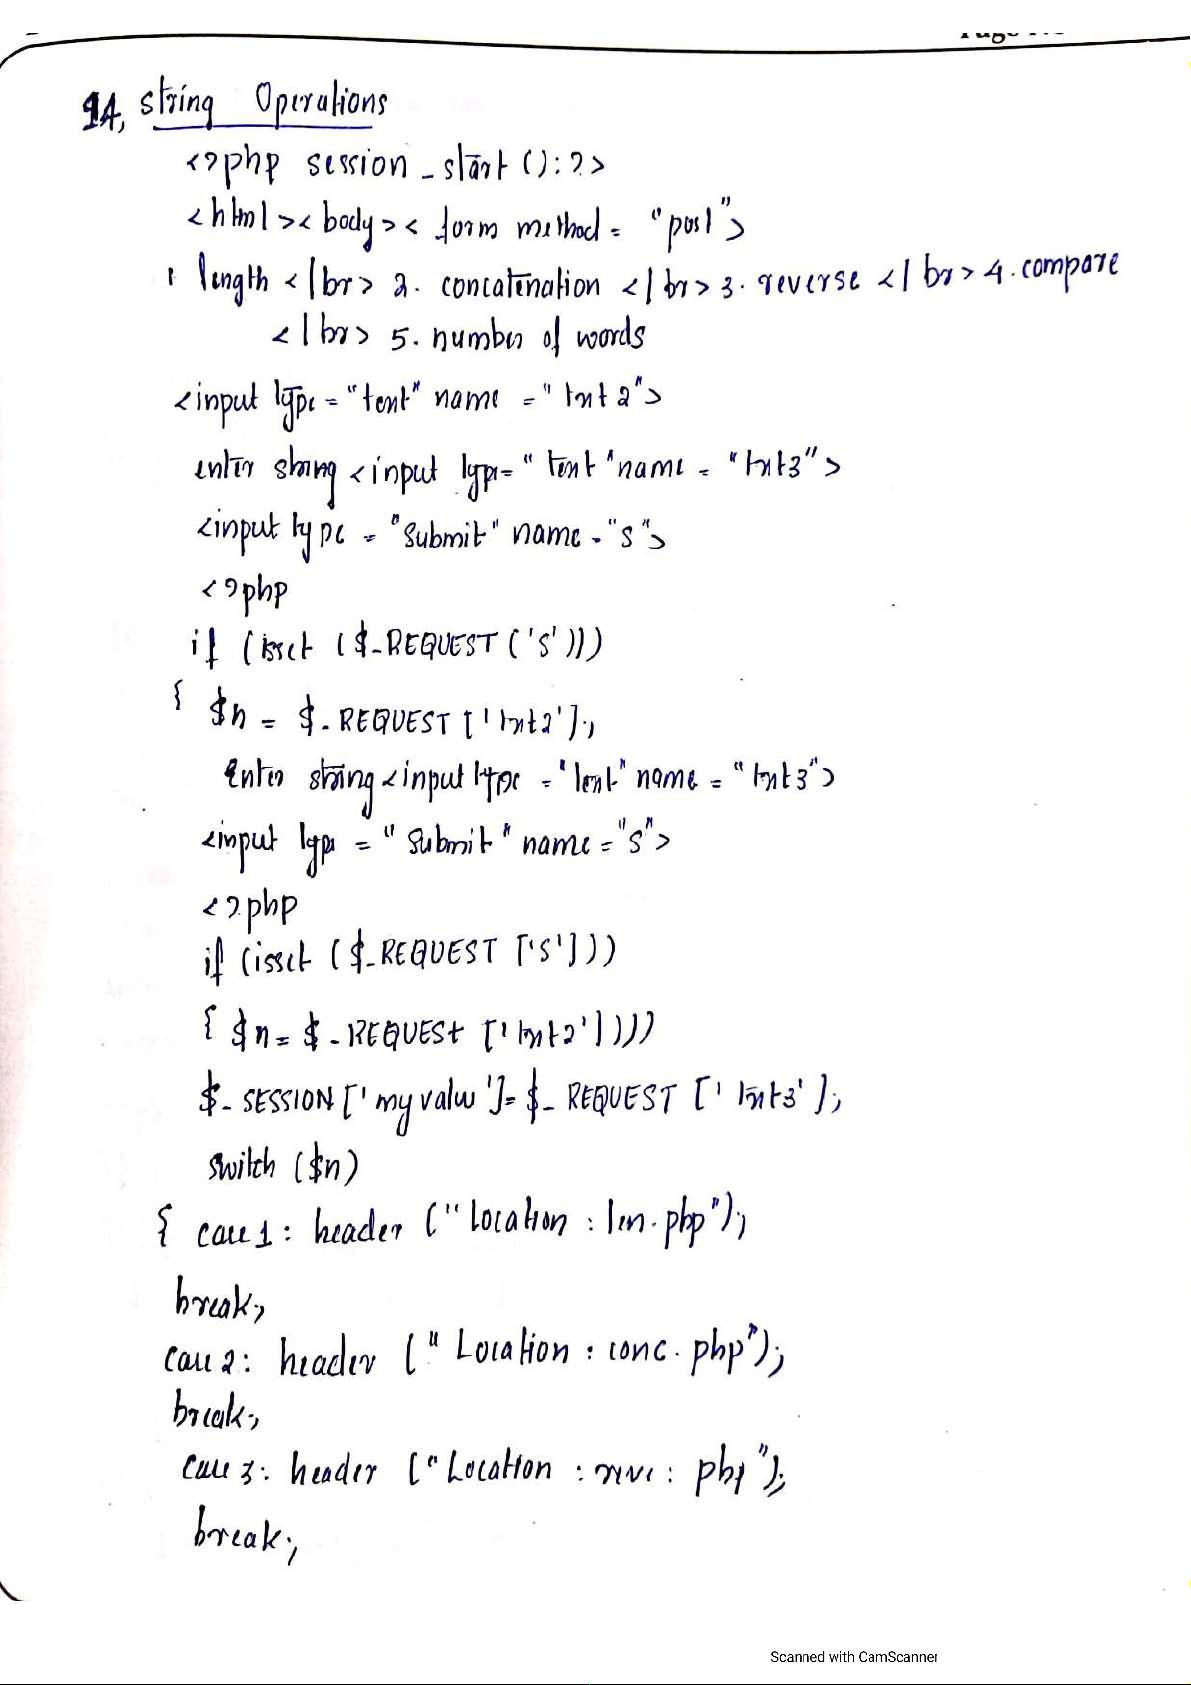 14, string Operations
<?php session_start ():?>
<html><body>< form method = "post">
1 length </br> 2. concatenation </br> 3. reverse </br> 4. compare
</br> 5. number of words
<input type = "text" name = "txt2">
enter string <input type = "text" name = "txt3">
<input type = "Submit" name = "s">
<?php
if (isset ($_REQUEST ('s')))
{ $n = $_REQUEST ['txt2'];
Enter string <input type = "text" name = "txt3">
<input type = "Submit" name = "s">
<?php
if (isset ($_REQUEST ['s']))
{ $n = $_REQUEST ['txt2'])))
$_SESSION ['my value'] = $_REQUEST ['txt3'];
switch ($n)
{ case 1: header ("Location : len.php");
break;
case 2: header ("Location : conc.php");
break;
case 3: header ("Location : reve : php");
break;
Scanned with CamScanner